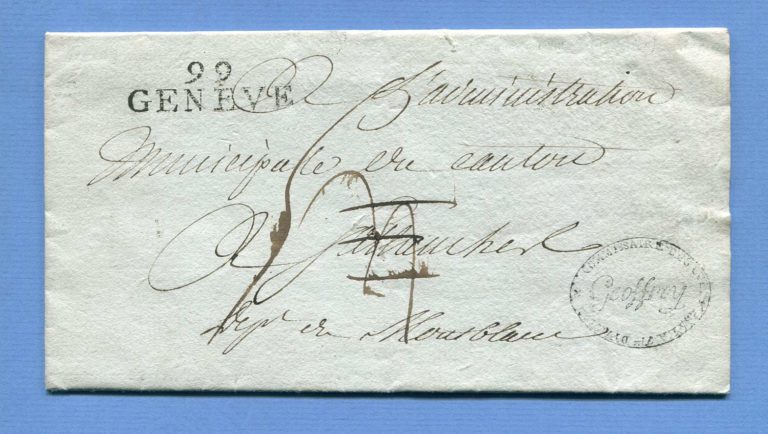 99
GENEVE
A L'administration
municipale du canton
A Sallanches
Dept du Montblanc
COMMISSAIRE DES
7e D